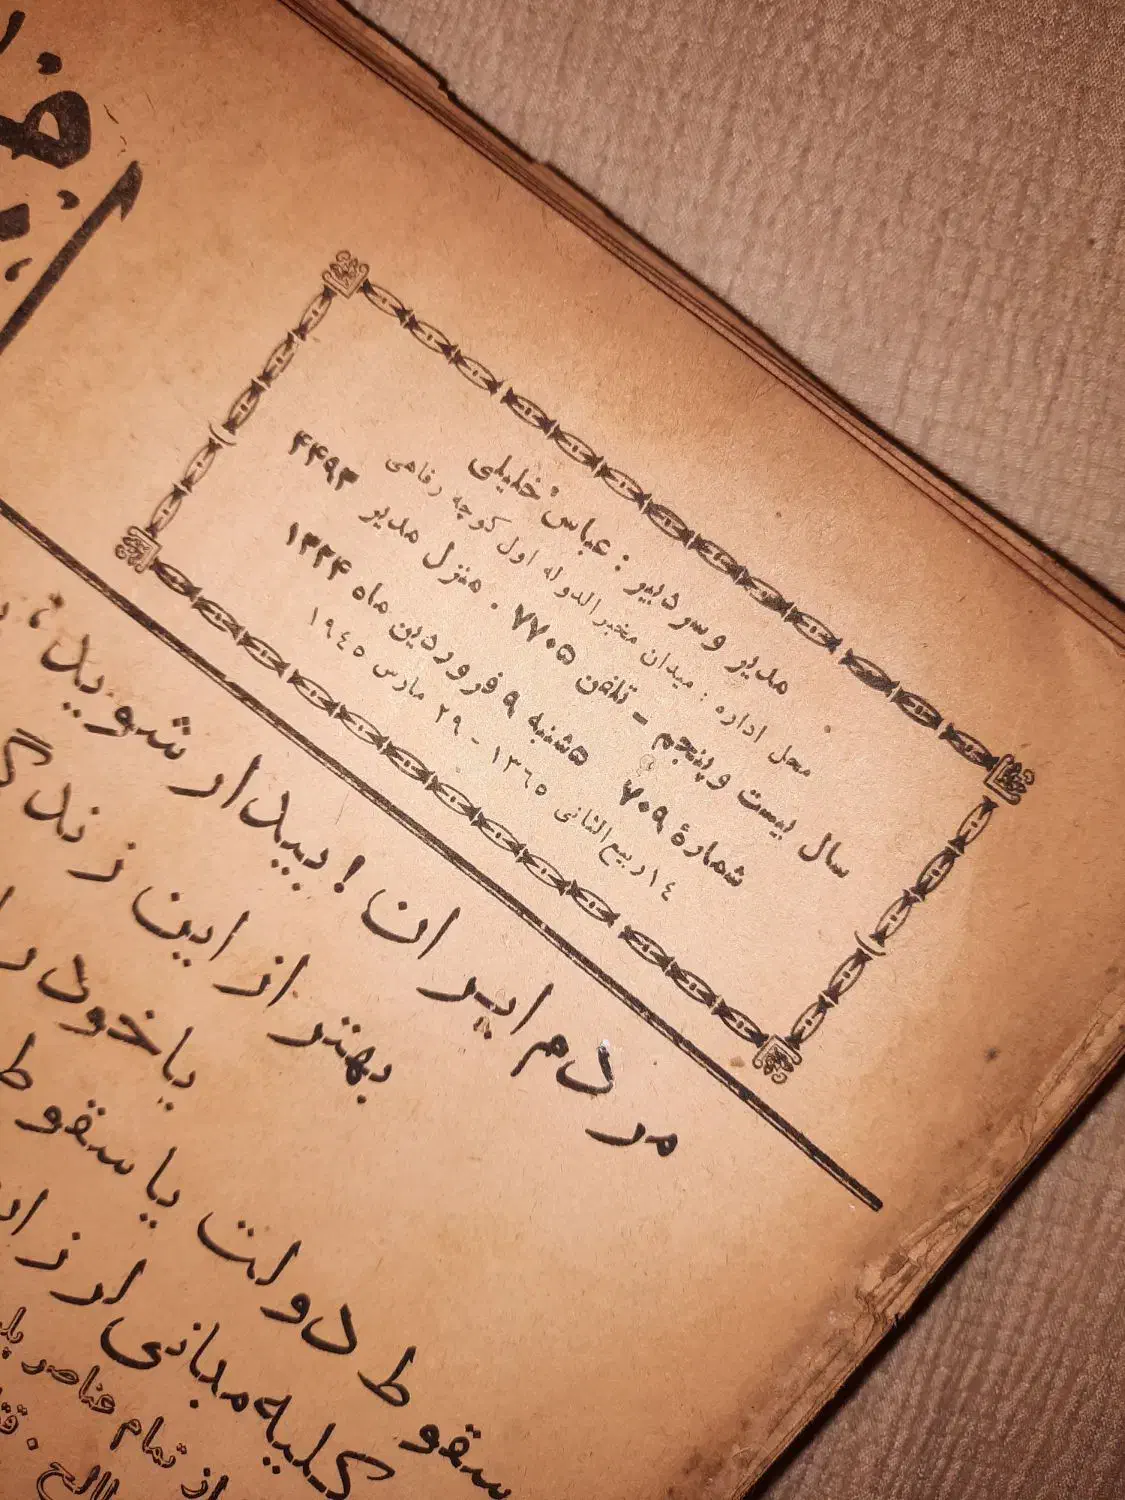 مدیر و سردبیر : عباس خلیلی
محل اداره : میدان مخبرالدوله اول کوچه رفاهی
سال بیست و پنجم - تلفن ۷۷۰۵ . منزل مدیر ۴۴۹۳
شمارهٔ ۷۰۹ ۵شنبه ۹ فروردین ماه ۱۳۲۴
١٤ ربیع الثانی ١٣٦٥ - ٢٩ مارس ١٩٤٥
مردم ایران ! بیدار شوید،
بهتر از این زندگی
یا خود را
سقوط دولت یا سقوط
کلیه مبانی لرزان
از تمام عناصر